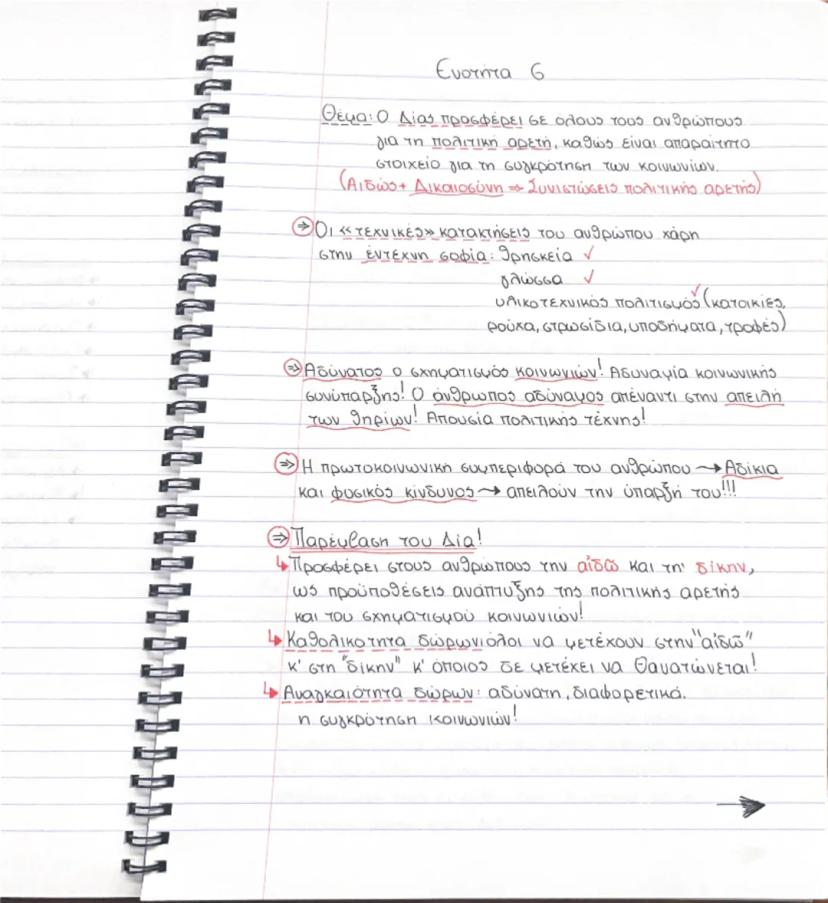 Ενοτητα 6
Θέμα: Ο Δίας προσφέρει σε όλους τους ανθρώπους
για τη πολιτική αρετή, καθώς είναι απαραίτητο
στοιχείο για τη συγκρότηση των κοινωνιών.
(Αιδώς + Δικαιοσύνη ⇒ Συνιστώσεις πολιτικής αρετής)
⇒ Οι «τεχνικές» κατακτήσεις του ανθρώπου χάρη
στην έντεχνη σοφία: θρησκεία ✓
γλώσσα ✓
υλικοτεχνικός πολιτισμός ✓ (κατοικίες,
ρούχα, στρωσίδια, υποδήματα, τροφές)
⇒ Αδύνατος ο σχηματισμός κοινωνιών! Αδυναμία κοινωνικής
συνύπαρξης! Ο άνθρωπος αδύναμος απέναντι στην απειλή
των θηρίων! Απουσία πολιτικής τέχνης!
⇒ Η πρωτοκοινωνική συμπεριφορά του ανθρώπου → Αδίκια
και φυσικός κίνδυνος → απειλούν την ύπαρξή του!!!
⇒ Παρέμβαση του Δία!
↳ Προσφέρει στους ανθρώπους την αἰδῶ και τη' δίκην,
ως προϋποθέσεις ανάπτυξης της πολιτικής αρετής
και του σχηματισμού κοινωνιών!
↳ Καθολικότητα δώρων: όλοι να μετέχουν στην "αἰδῶ"
κ' στη "δίκην" κ' όποιος δε μετέχει να θανατώνεται!
↳ Αναγκαιότητα δώρων: αδύνατη, διαφορετικά.
η συγκρότηση κοινωνιών!